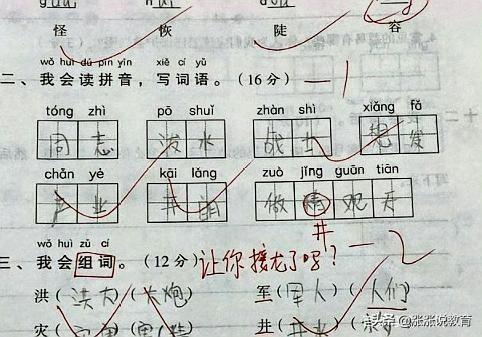 怪 恢 陡 容
wǒ huì dú pīn yīn xiě cí yǔ
二、我会读拼音,写词语。(16分) 一1
tóng zhì pō shuǐ zhàn shì xiǎng fǎ
同志 泼水 战士 想发
chǎn yè kāi lǎng zuò jǐng guān tiān
产业 开朗 做情观天
井
wǒ huì zǔ cí
三、我会组词。(12分) 让你接龙了吗? 一2
洪(洪力)(火炮) 军(军人)(人们)
灾 井(井水)
头条@涨涨说教育